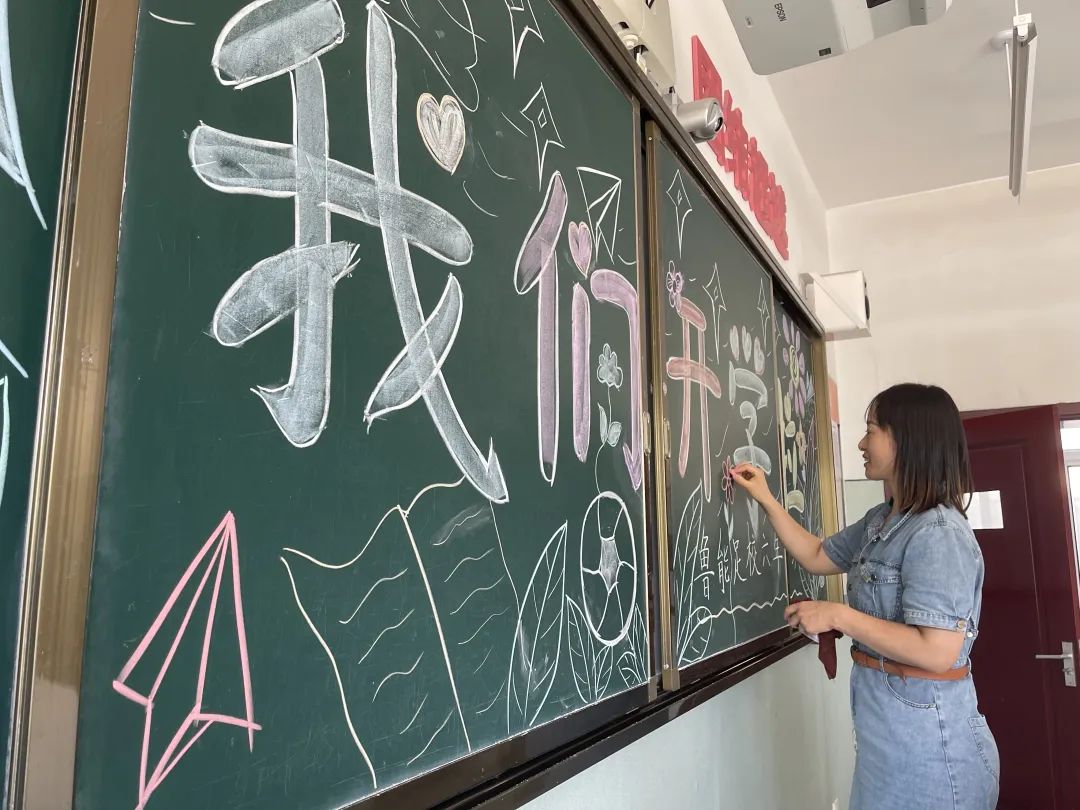 EPSON
我们开学
鲁能足校六年